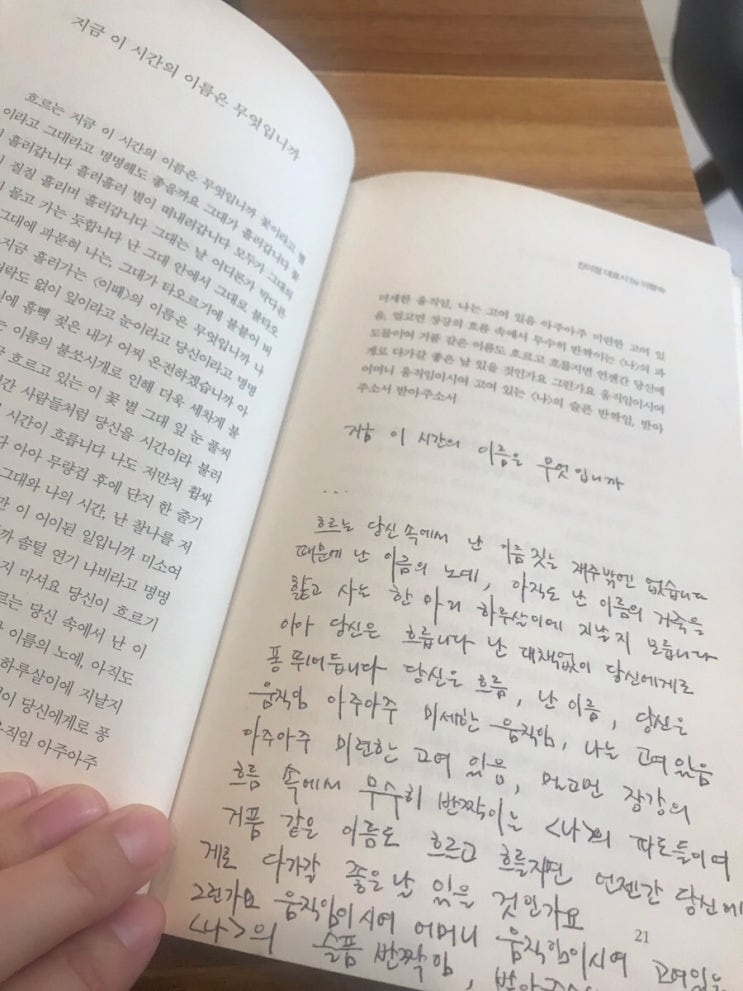 지금 이 시간의 이름은 무엇입니까
흐르는 지금 이 시간의 이름은 무엇입니까 꽃이라고 별
이라고 그대라고 명명해도 좋을까요 그대가 흘러갑니다 꽃
흘러갑니다 흘러흘러 별이 떠내려갑니다 모두가 그대의
질질 흘리며 흘러갑니다 그대는 날 어디론가 막다른
물고 가는 듯합니다 난 그대 안에서 그대로 불타오
그대에 파문혀 나는, 그대가 타오르기에 불붙이 버
지금 흘러가는 <이때>의 이름은 무엇입니까 나
락도 없이 잎이라고 눈이라고 당신이라고 명명
에 흠뻑 젖은 내가 어찌 온전하겠습니까 아
는 이름의 불쏘시개로 인해 더욱 세차게 불
흐르고 있는 이 꽃 별 그대 잎 눈 풀씨
간 사람들처럼 당신을 시간이라 불러
시간이 흐릅니다 나도 저만치 휩싸
다 아아 무량겁 후에 단지 한 줄기
그대와 나의 시간, 난 찰나를 저
만 이 어이된 일입니까 미소어
까 솜털 연기 나비라고 명명
지 마서요 당신이 흐르기
르는 당신 속에서 난 이
이름의 노예, 아직도
하루살이에 지날지
이 당신에게로 퐁
움직임 아주아주
진이정 대표시
미세한 움직임, 나는 고여 있음 아주아주 미련한 고여 있
음, 멀고먼 장강의 흐름 속에서 무수히 반짝이는 <나>의 파
도들이여 거품 같은 이름도 흐르고 흐를지면 언젠간 당신에
게로 다가갈 좋은 날 있을 것인가요 그런가요 움직임이시여
어머니 움직임이시여 고여 있는 <나>의 슬픈 반짝임, 받아
주소서 받아주소서
지금 이 시간의 이름은 무엇입니까
...
흐르는 당신 속에서 난 이름 짓는 재주밖엔 없습니다
때문에 난 이름의 노예, 아직도 난 이름의 거죽을
핥고 사는 한 마리 하루살이에 지날지 모릅니다
아아 당신은 흐릅니다 난 대책없이 당신에게로
퐁 뛰어듭니다 당신은 흐름, 난 이름, 당신은
움직임 아주아주 미세한 움직임, 나는 고여있음
아주아주 미련한 고여 있음, 멀고먼 장강의
흐름 속에서 무수히 반짝이는 <나>의 파도들이여
거품 같은 이름도 흐르고 흐를지면 언젠간 당신에
게로 다가갈 좋은 날 있을 것인가요
그런가요 움직임이시여 어머니 움직임이시여 고여있는
<나>의 슬픔 반짝임,
21